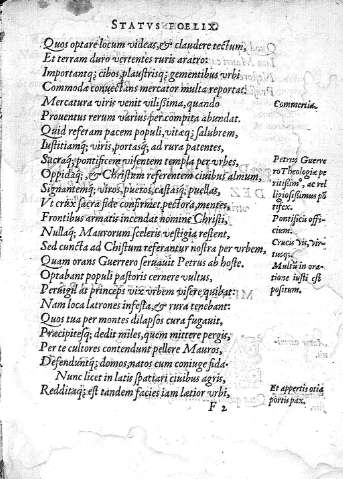 STATVS FOELIX.
Quos optare locum videas, & claudere tectum,
Et terram duro vertentes ruris aratro:
Importantq; cibos, plaustrisq; gementibus vrbi
Commoda conuectans mercator multa reportat:
Mercatura viris venit vilissima, quando
Commertia.
Prouentus rerum varius per compita abundat.
Quid referam pacem populi, vitāq; salubrem,
Iustitiamq; viris, portasq; ad rura patentes,
Sacraq; pontificem visentem templa per vrbes,
Petrus Guerre
Oppidaq; & Christum referentem ciuibus almum,
ro Theologiæ pe
Signantemq; viros, pueros, castasq; puellas,
ritissim°, ac rel
ligiosissimus põ
Vt crux sacra fide confirmet, pectora, mentes,
tifex.
Frontibus armatis incendat nomine Christi,
Pontificis offi-
Nullaq; Maurorum sceleris vestigia restent,
cium.
Sed cuncta ad Chistum referantur nostra per vrbem,
Crucis vis, vir-
tusq;
Quam orans Guerrero seruauit Petrus ab hoste.
Multũ in ora-
Optabant populi pastoris cernere vultus,
tione iusti est
Peruigil at princeps vix vrbem visere quibat:
positum.
Nam loca latrones infesta, & rura tenebant:
Quos tua per montes dilapsos cura fugauit,
Præcipitesq; dedit miles, quem mittere pergis,
Per te cultores contendunt pellere Mauros,
Defenduntq; domos, natos cum coniuge fida.
Nunc licet in latis spatiari ciuibus agris,
Et appertis otia
Redditaq; est tandem facies iam lætior vrbi,
portis pax.
F 2